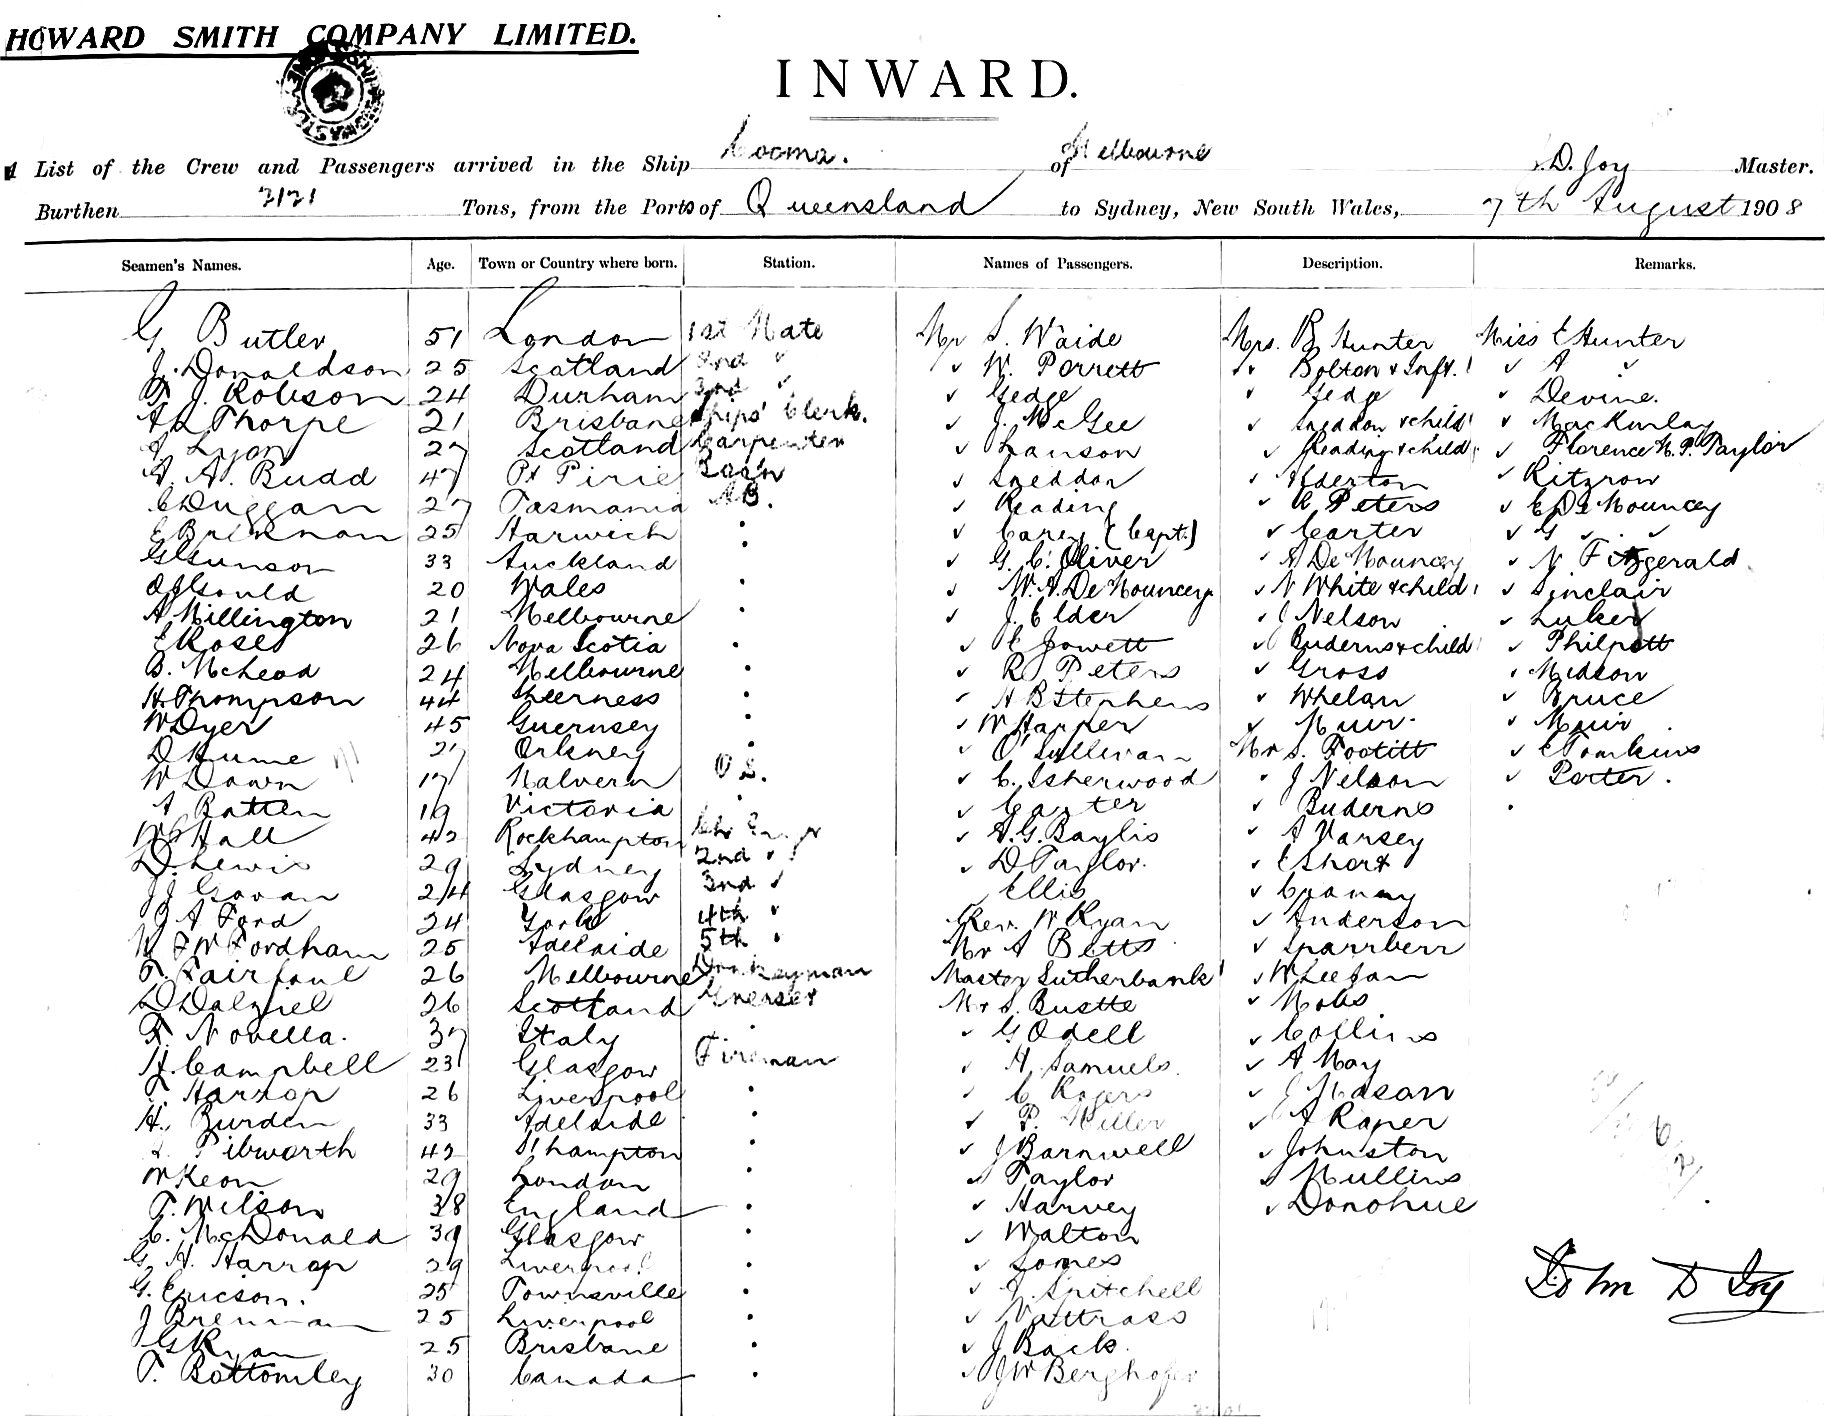 HOWARD SMITH COMPANY LIMITED.
INWARD.
List of the Crew and Passengers arrived in the Ship Cooma. of Melbourne J.D. Joy Master.
Burthen 2121 Tons, from the Ports of Queensland to Sydney, New South Wales, 7th August 1908
Seamen's Names. Age. Town or Country where born. Station. Names of Passengers. Description. Remarks.
G Butler 51 London 1st Mate Mr S. Waide Mrs. B Hunter Miss E Hunter
J. Donaldson 25 Scotland 2nd " " W. Perrett " Bolton & Inft. 1 " A "
T. J. Robson 24 Durham 3rd " " Gedge " Gedge " Devine.
A L Thorpe 21 Brisbane Ships' Clerk. " J. McGee " Sneddon & child 1 " MacKinlay
J Lyon 27 Scotland Carpenter " Lanson " Reading & child 1 " Florence M. P. Taylor
A. A. Budd 47 Pt Pirie Bos'n " Sneddon " Alderton " Ritzrow
C Duggan 27 Tasmania A.B. " Reading " C Peters " E De Mouncey
E Brinkman 25 Harwich " " Carey (Capt.) " Carter " G "
G Gunson 33 Auckland " " G. C. Oliver " A De Mouncey " N Fitzgerald
O J Gould 20 Wales " " W. A. De Mouncey " N White & child 1 " Sinclair
A Millington 21 Melbourne " " J. Elder " J Nelson " Luker
E Rose 26 Nova Scotia " " C Jowett " Buderns & child 1 " Philpott
B. McLeod 24 Melbourne " " R Peters " Gross " Midson
H. Thompson 44 Sheerness " " A B Stephens " Whelan " Bruce
W Dyer 45 Guernsey " " W Harper " Muir " Muir
D Hume 21 Orkney " " O'Sullivan Mr S. Footitt " E Tomkins
W Down 17 Malvern O.S. " C. Isherwood " J Nelson " Porter.
A Batten 19 Victoria " " Carter " Buderns
W S Hall 42 Rockhampton Chf Engr " A. G. Baylis " A Varsey
D. Lewis 29 Sydney 2nd " " D Taylor. " E Short
J J Govan 24 Glasgow 3rd " Ellis "
J A Ford 24 York 4th " Rev. W Ryan " Anderson
W F W Fordham 25 Adelaide 5th " Mr A Betts " Sparrberr
T. Fairfoul 26 Melbourne Donkeyman Master Sutherbank 1 " W Leefam
D Dalziel 26 Scotland Greaser Mr S. Bustte " Mobs
F. Novella. 37 Italy " " G Odell " Collins
H. Campbell 23 Glasgow Fireman " H. Samuels. " A May
T. Harrop 26 Liverpool " " C Rogers " J Mason
H. Burden 33 Adelaide " " P. Miller " A Raper
Pibworth 42 S'hampton " " J Barnwell " Johnston
W Keon 29 London " " Taylor " Mullins
T. Wilson 38 England " " Harvey " Donohue
C. McDonald 39 Glasgow " " Walton
G. H. Harrop 29 Liverpool " " Jones
G. Ericson. 25 Townsville " " J. Spitchell
J Brennan 25 Liverpool " " Vattrass
J G Ryan 25 Brisbane " " J Back.
T. Bottomley 30 Canada " " J W Berghofer
John D Joy